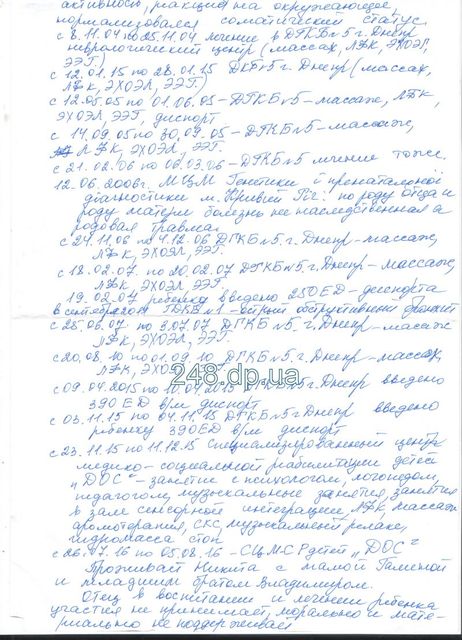 активность, реакция на окружающее,
нормализовался соматический статус.
с 8.11.04 по 25.11.04 лечение в ДГКБ№5 г. Днепр
неврологический центр (массаж, ЛФК, ЭХОЭГ,
ЭЭГ.)
с 12.01.15 по 28.01.15 ДКБ№5 г. Днепр (массаж,
ЛФК, ЭХОЭГ, ЭЭГ.)
с 12.05.05 по 01.06.05 - ДГКБ№5 - массаж, ЛФК,
ЭХОЭГ, ЭЭГ, диспорт
с 14.09.05 по 30.09.05 - ДГКБ№5 - массаж,
ЛФК, ЭХОЭГ, ЭЭГ.
с 21.02.06 по 06.03.06 - ДГКБ№5 лечение тоже.
12.06.2006г. МЦМ Генетики и пренатальной
диагностики м. Кривий Ріг: по роду отца и
роду матери болезнь не наследственная а
родовая травма.
с 24.11.06 по 4.12.06 ДГКБ№5 г. Днепр - массаж,
ЛФК, ЭХОЭГ, ЭЭГ.
с 18.02.07 по 20.02.07 ДГКБ№5 г. Днепр - массаж,
ЛФК, ЭХОЭГ, ЭЭГ.
19.02.07 ребенку введено 250ED - диспорта
в сентябре ГДКБ№1 - острый обструктивный бронхит
с 25.06.07 по 3.07.07 ДГКБ№5 г. Днепр - массаж
ЛФК, ЭХОЭГ, ЭЭГ.
с 20.08.10 по 01.09.10 ДГКБ№5 г. Днепр - массаж,
ЛФК, ЭХОЭГ
248.dp.ua
с 09.04.2015 по 10.04.2015 г. Днепр введено
390 ED в/м диспорт
с 03.11.15 по 04.11.15 ДГКБ№5 г. Днепр введено
ребенку 390ED в/м диспорт
с 23.11.15 по 11.12.15 Специализированный центр
медико-социальной реабилитации детей
„ДОС“ - занятие с психологом, логопедом,
педагогом, музыкальные занятия, занятия
в зале сенсорной интеграции, ЛФК, массаж
аромотерапия, СКС, музыкальный релакс,
гидромасса стоп
с 26.07.16 по 05.08.16 - СЦМСР детей „ДОС“
Проживает Никита с мамой Галиной
и младшим братом Владимиром.
Отец в воспитании и лечении ребенка
участия не принимает, морально и мате-
риально не поддерживает